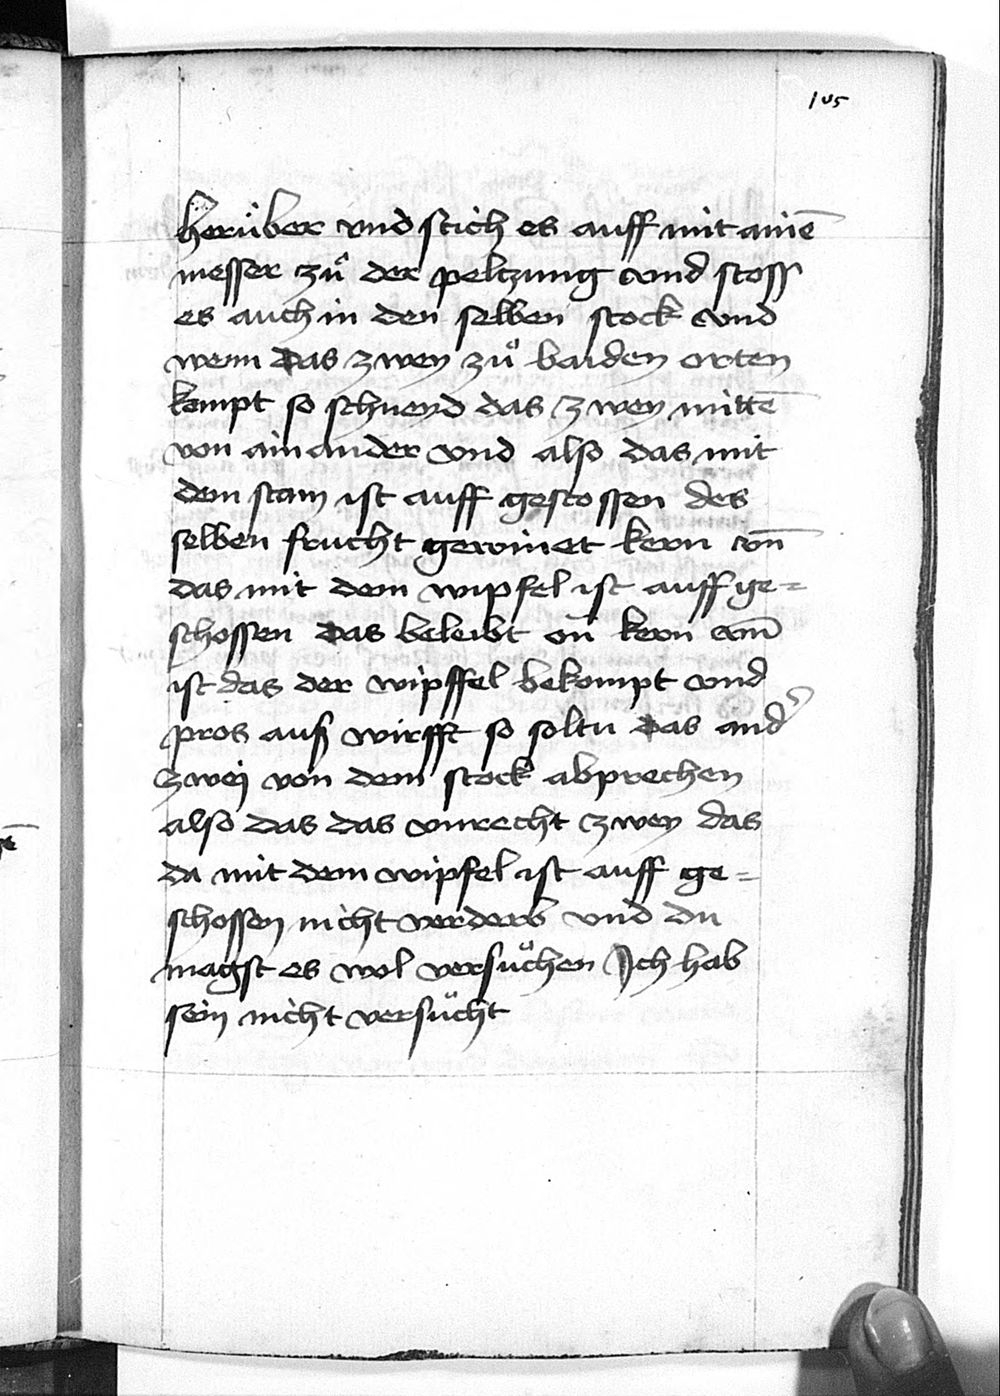 105
herüber vnd stich es auff mit ainē
messer zů der peltzung vnd stoss
es auch in den selben stock vnd
wenn das zwey zů baiden orten
kompt so schneyd das zwey mittē
von ain ander vnd also das mit
dem stam ist auff gestossen des
selben frucht gewinet kern vnd
das mit dem wipfel ist auff ge=
schossen das beleibt on kern vnd
ist das der wipffel bekompt vnd
pros auß wirfft so soltu das and'
zweij von dem stock abprechen
also das das vnrecht zwey das
da mit dem wipfel ist auff ge=
schossen nicht verderb vnd du
magst es wol versůchen Ich hab
sein nicht versůcht